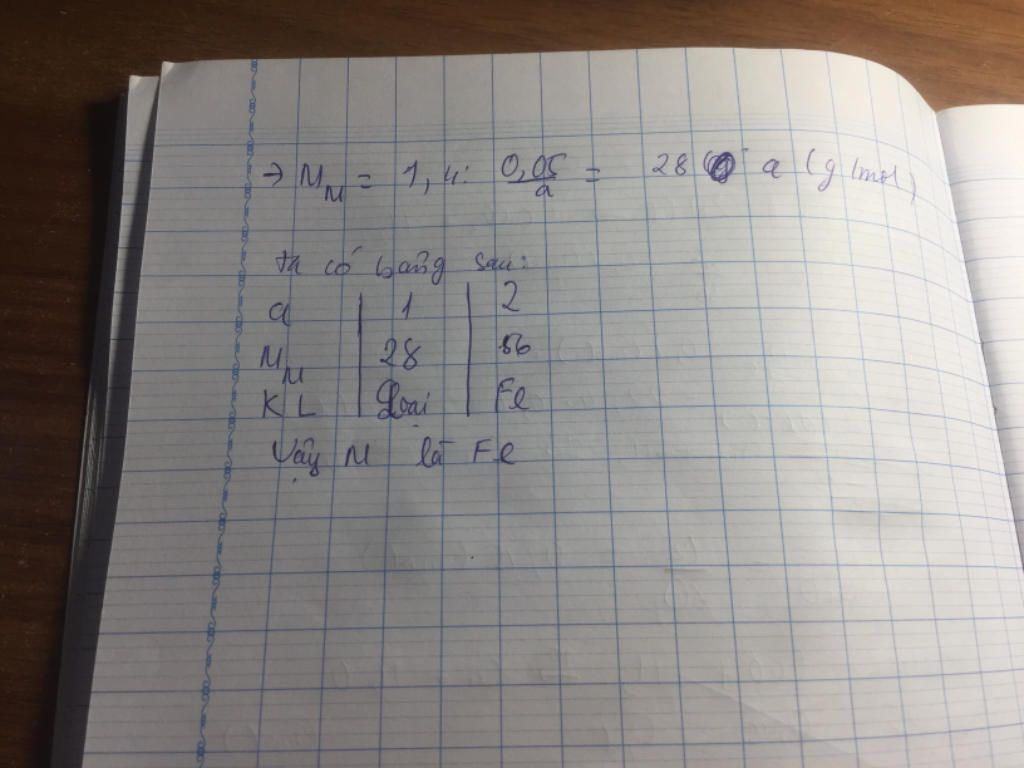 → M_M = 1,4 : 0,05/a = 28 a (g/mol)
Ta có bảng sau:
a | 1 | 2
M_M | 28 | 56
KL | Loại | Fe
Vậy M là Fe